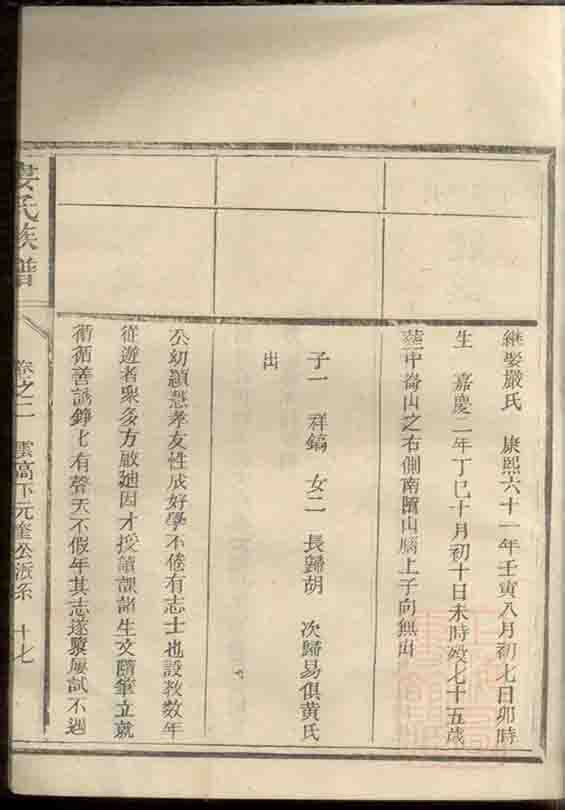 繼娶嚴氏　康熙六十一年壬寅八月初七日卯時
生　嘉慶二年丁巳十月初十日未時歿七十五歲
塟中嵛山之右側南山塍上子向無出
子一　祥鎬　女二　長歸胡　次歸易俱黃氏
出
公幼穎慧孝友性成好學不倦有志士也設教數年
從遊者衆多方啟廸因才授讀課諸生文隨筆立就
循循善誘錚匕有聲天不假年其志遂屢試不遇
婁氏族譜
卷之二　雲高下元奎公派系　十七